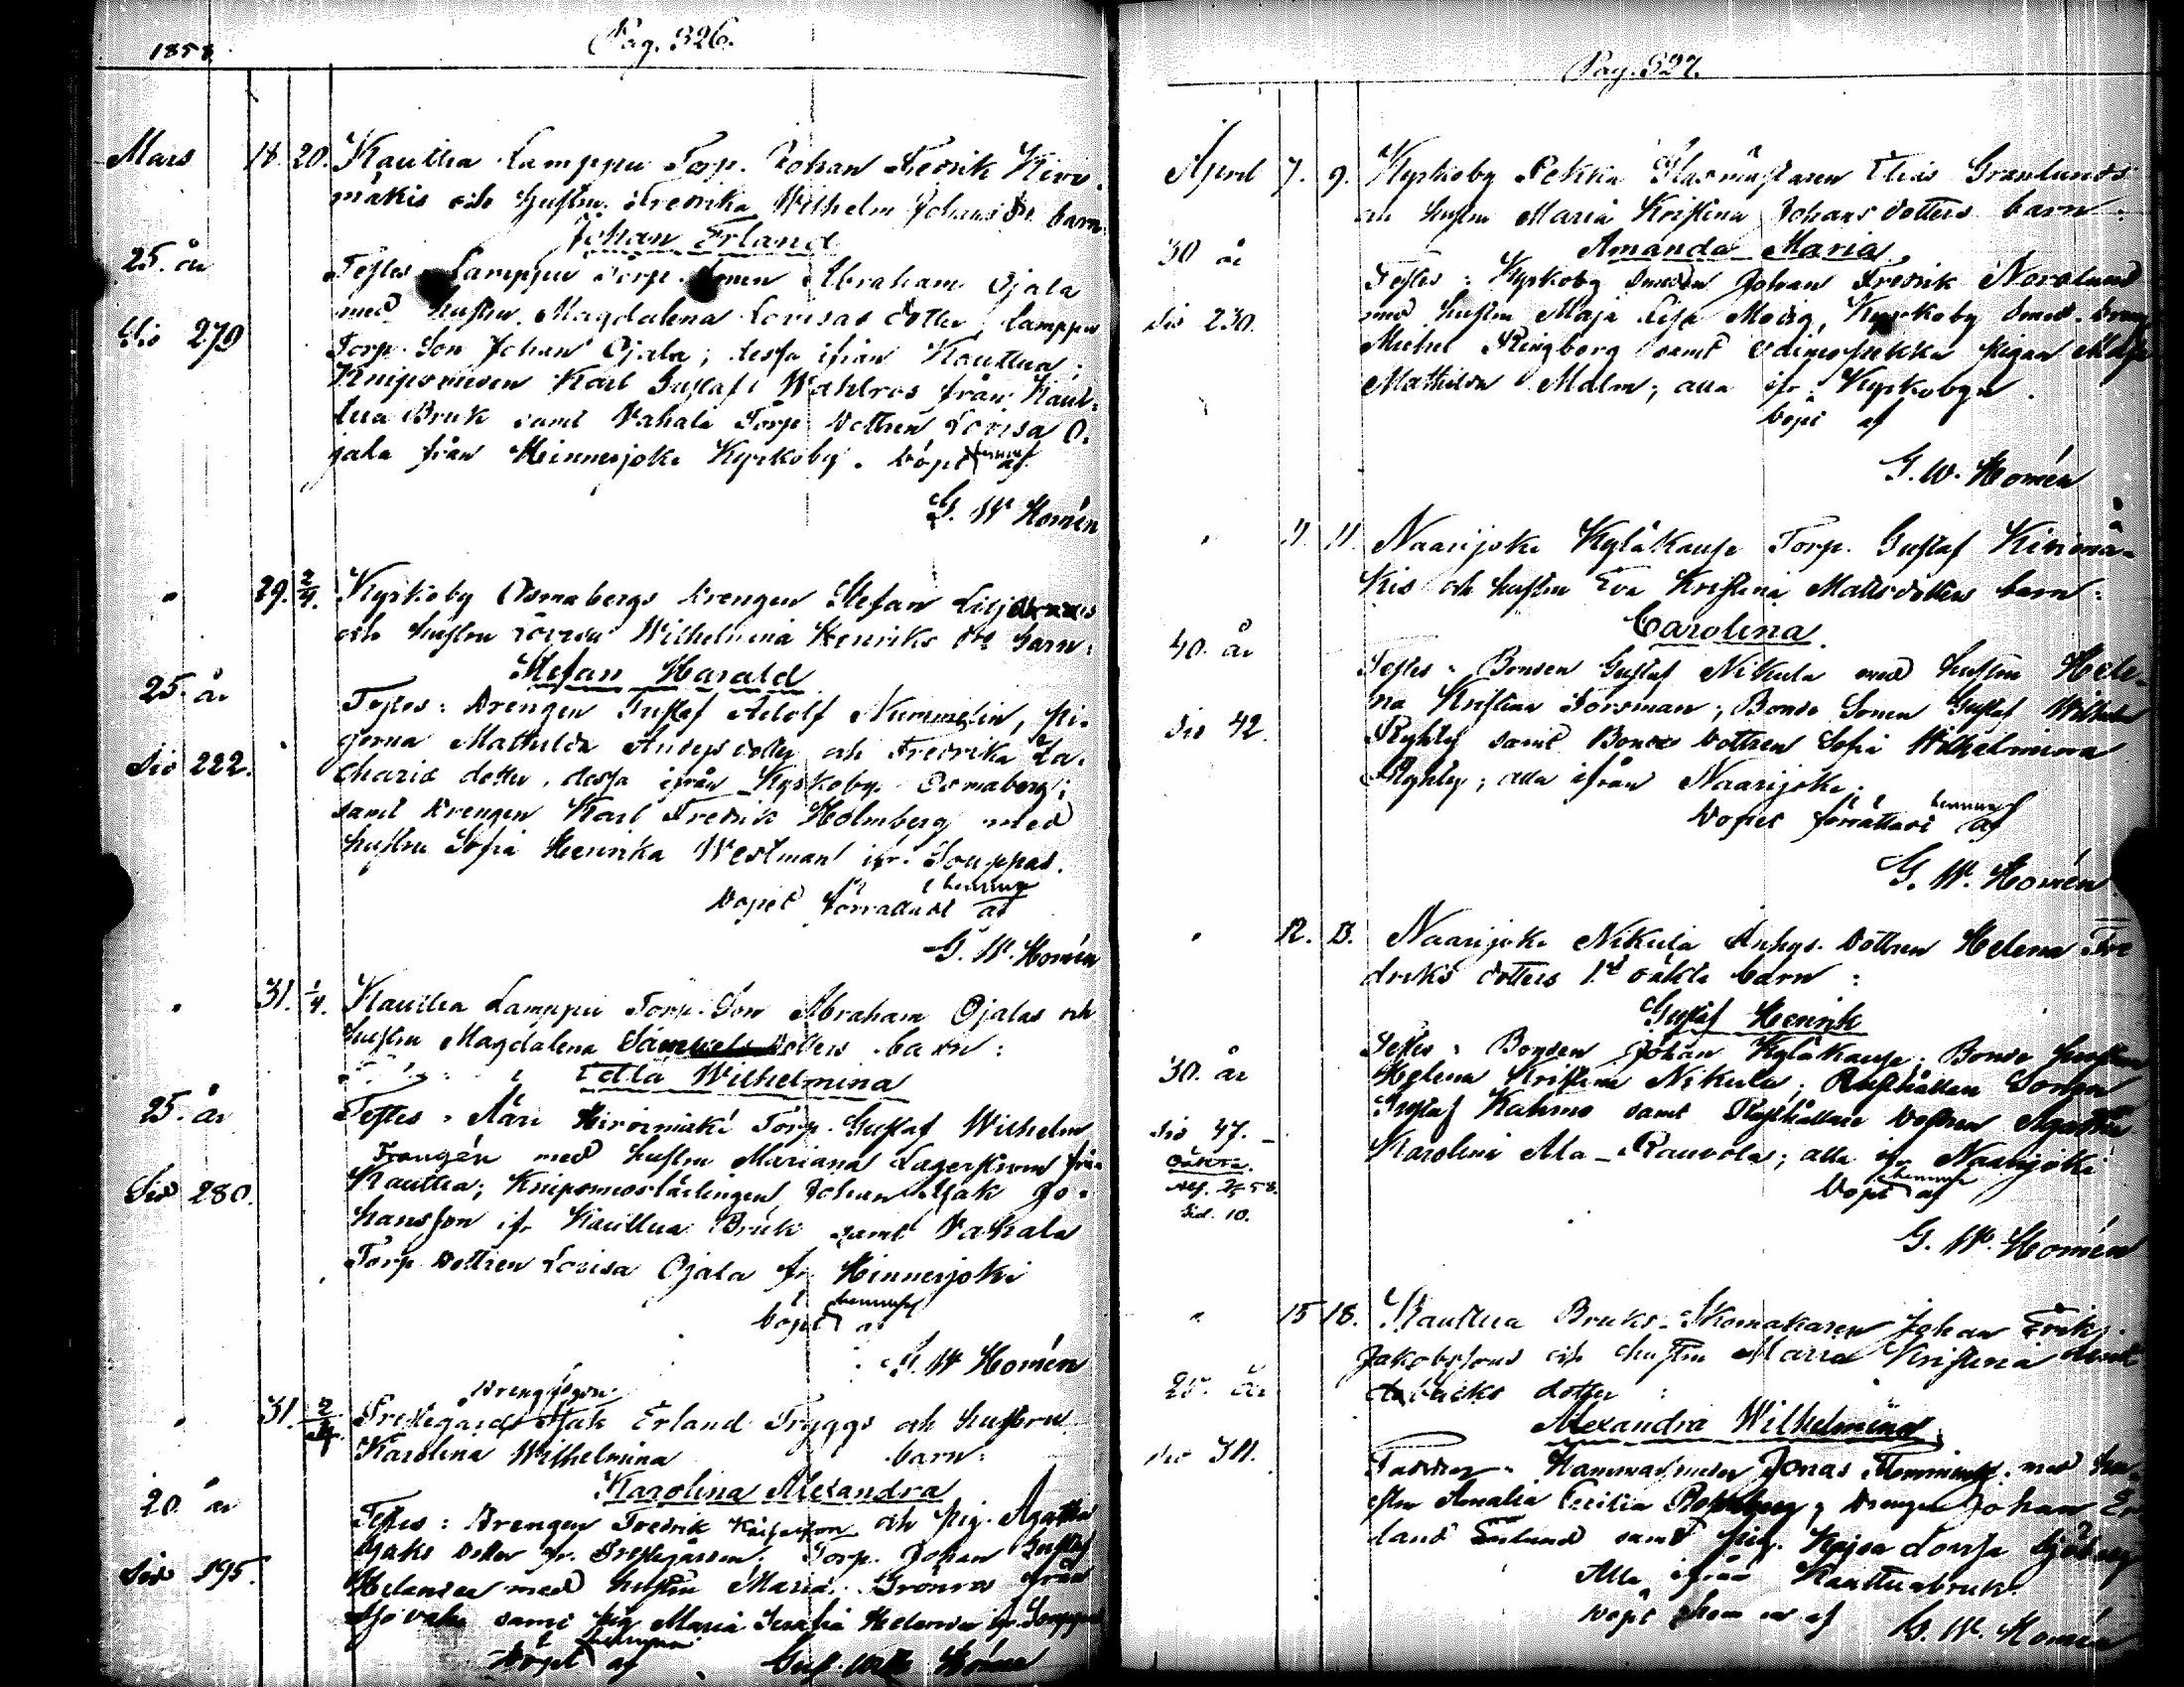 1858.
Pag. 326.
Mars 18. 20. Kauttua Lamppu Torp. Johan Fredrik Hirvi-
mäkis och hustru Fredrika Wilhelm. Johans dr. barn:
Johan Erland
25. år
Testes: Lamppu Torp. Sonen Abraham Ojala
med hustru Magdalena Lovisas dotter, Lamppu
Sid 279
Torp. Son Johan Ojala; dessa ifrån Kauttua;
Knipsmeden Karl Gustaf Wahlros från Kaut-
tua Bruk samt Vahala Torp. Dottren Lovisa O-
jala från Hinnerjoki Kyrkoby. Döpt hemma af
G. W. Homén
" 29. 2/4. Kyrkoby Osmabergs Drengen Stefan
och hustru Lovisa Wilhelmina Henriks dtr barn:
Stefan Harald
25. år
Testes: Drengen Gustaf Adolf Nummelin, Pi-
gorna Mathilda Anders dotter och Fredrika Za-
Sid 222.
charis dotter, dessa ifrån Kyrkoby Osmaberg;
samt Drengen Karl Fredrik Holmberg med
hustru Sofia Henrika Westman ifr. Souppas.
Dopet förrättadt hemma af
G. W. Homén
" 31. 1/4. Kauttua Lamppu Torp. Son Abraham Ojalas och
hustru Magdalena Samuels Dotters barn:
Edla Wilhelmina
25. år
Testes: Hirvimäki Torp. Gustaf Wilhelm
Frangén med hustru Mariana Lagerström från
Sid 280.
Kauttua; Knipsmedslärlingen Johan Isak Jo-
hansson ifr. Kauttua Bruk samt Vahala
Torp. Dottren Lovisa Ojala fr. Hinnerjoki
Döpt hemma af
G. W. Homén
Drengsson
" 31. 2/4 Prestegårds Isak Erland Tryggs och hustrus
Karolina Wilhelmina barn:
Karolina Alexandra
20 år
Testes: Drengen Fredrik och Pig. Agatha
Isaks dotter fr. Prestgården; Torp. Johan Gustaf
Sid 195.
Helander med hustru Maria Grönros från
samt Pig. Maria Serafia Helander ifr. Souppas
Döpt hemma af Homén
Pag. 327.
April 7. 9. Kyrkoby Pekkia Glasmästaren Elias Granlunds
och hustru Maria Kristina Johans dotters barn:
Amanda Maria
30 år
Testes: Kyrkoby Smeden Johan Fredrik Norslund
Sid 230.
med hustru Maja Lisa Moisio, Kyrkoby Smed. Dreng
Michel Ringborg samt pigan Maja
Mathilda Malm; alla ifr. Kyrkobyn.
Döpt af
G. W. Homén
" 11. 11. Naarijoki Kyläkause Torp. Gustaf Kivimä-
kis och hustru Eva Kristina Mattsdotters barn:
Carolina
40. år
Testes: Bonden Gustaf Nikula med hustru Hele-
na Kristina Forsman; Bonde Sonen Gustaf Wilhelm
Sid 42.
Ryhty samt Bonde Dottren Sofia Wilhelmina
Ryhty; alla ifrån Naarijoki.
Dopet förrättadt hemma af
G. W. Homén
" 12. 13. Naarijoki Nikula Inhys. Dottren Helena Fre-
driks dotters 1:a oäkta barn:
Gustaf Henrik
30. år
Testes: Bonden Johan Kyläkause; Bonde hustrun
Helena Kristina Nikula; Rusthållare Sonen
Sid 47.
Oäkta.
Sid. 10.
Gustaf Kahmo samt Rusthållare Dottren Agatha
Karolina Ala-Rauvola; alla ifr. Naarijoki
Döpt hemma af
G. W. Homén
" 15 18. Kauttua Bruks-Skomakaren Johan Erik
Jakobssons och hustru Maria Kristina
dotter:
25. år
Alexandra Wilhelmina
Faddrar: Hammarsmeden Jonas Flemming med hu-
stru Amalia Cecilia; Drengen Johan Er-
land samt pig. Kajsa Lovisa
Alla ifrån Kauttua bruk.
Döpt hemma af
G. W. Homén